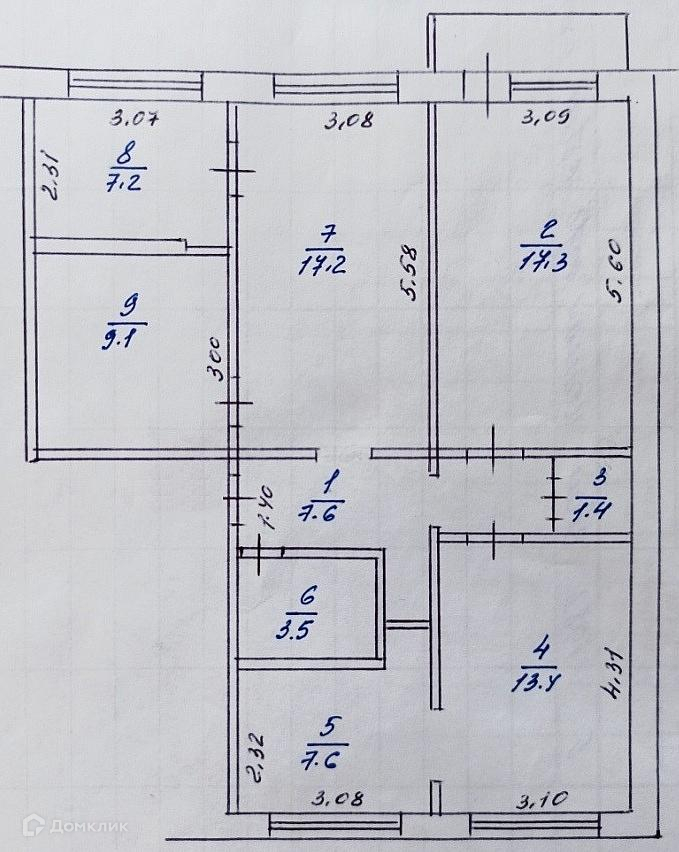 3.07
3,08
3,09
2.31
8
7.2
7
17.2
5.58
2
17.3
5.60
9
9.1
300
1
7.6
1.40
3
1.4
6
3.5
4
13.4
4.31
5
7.6
2.32
3.08
3.10
Домклик